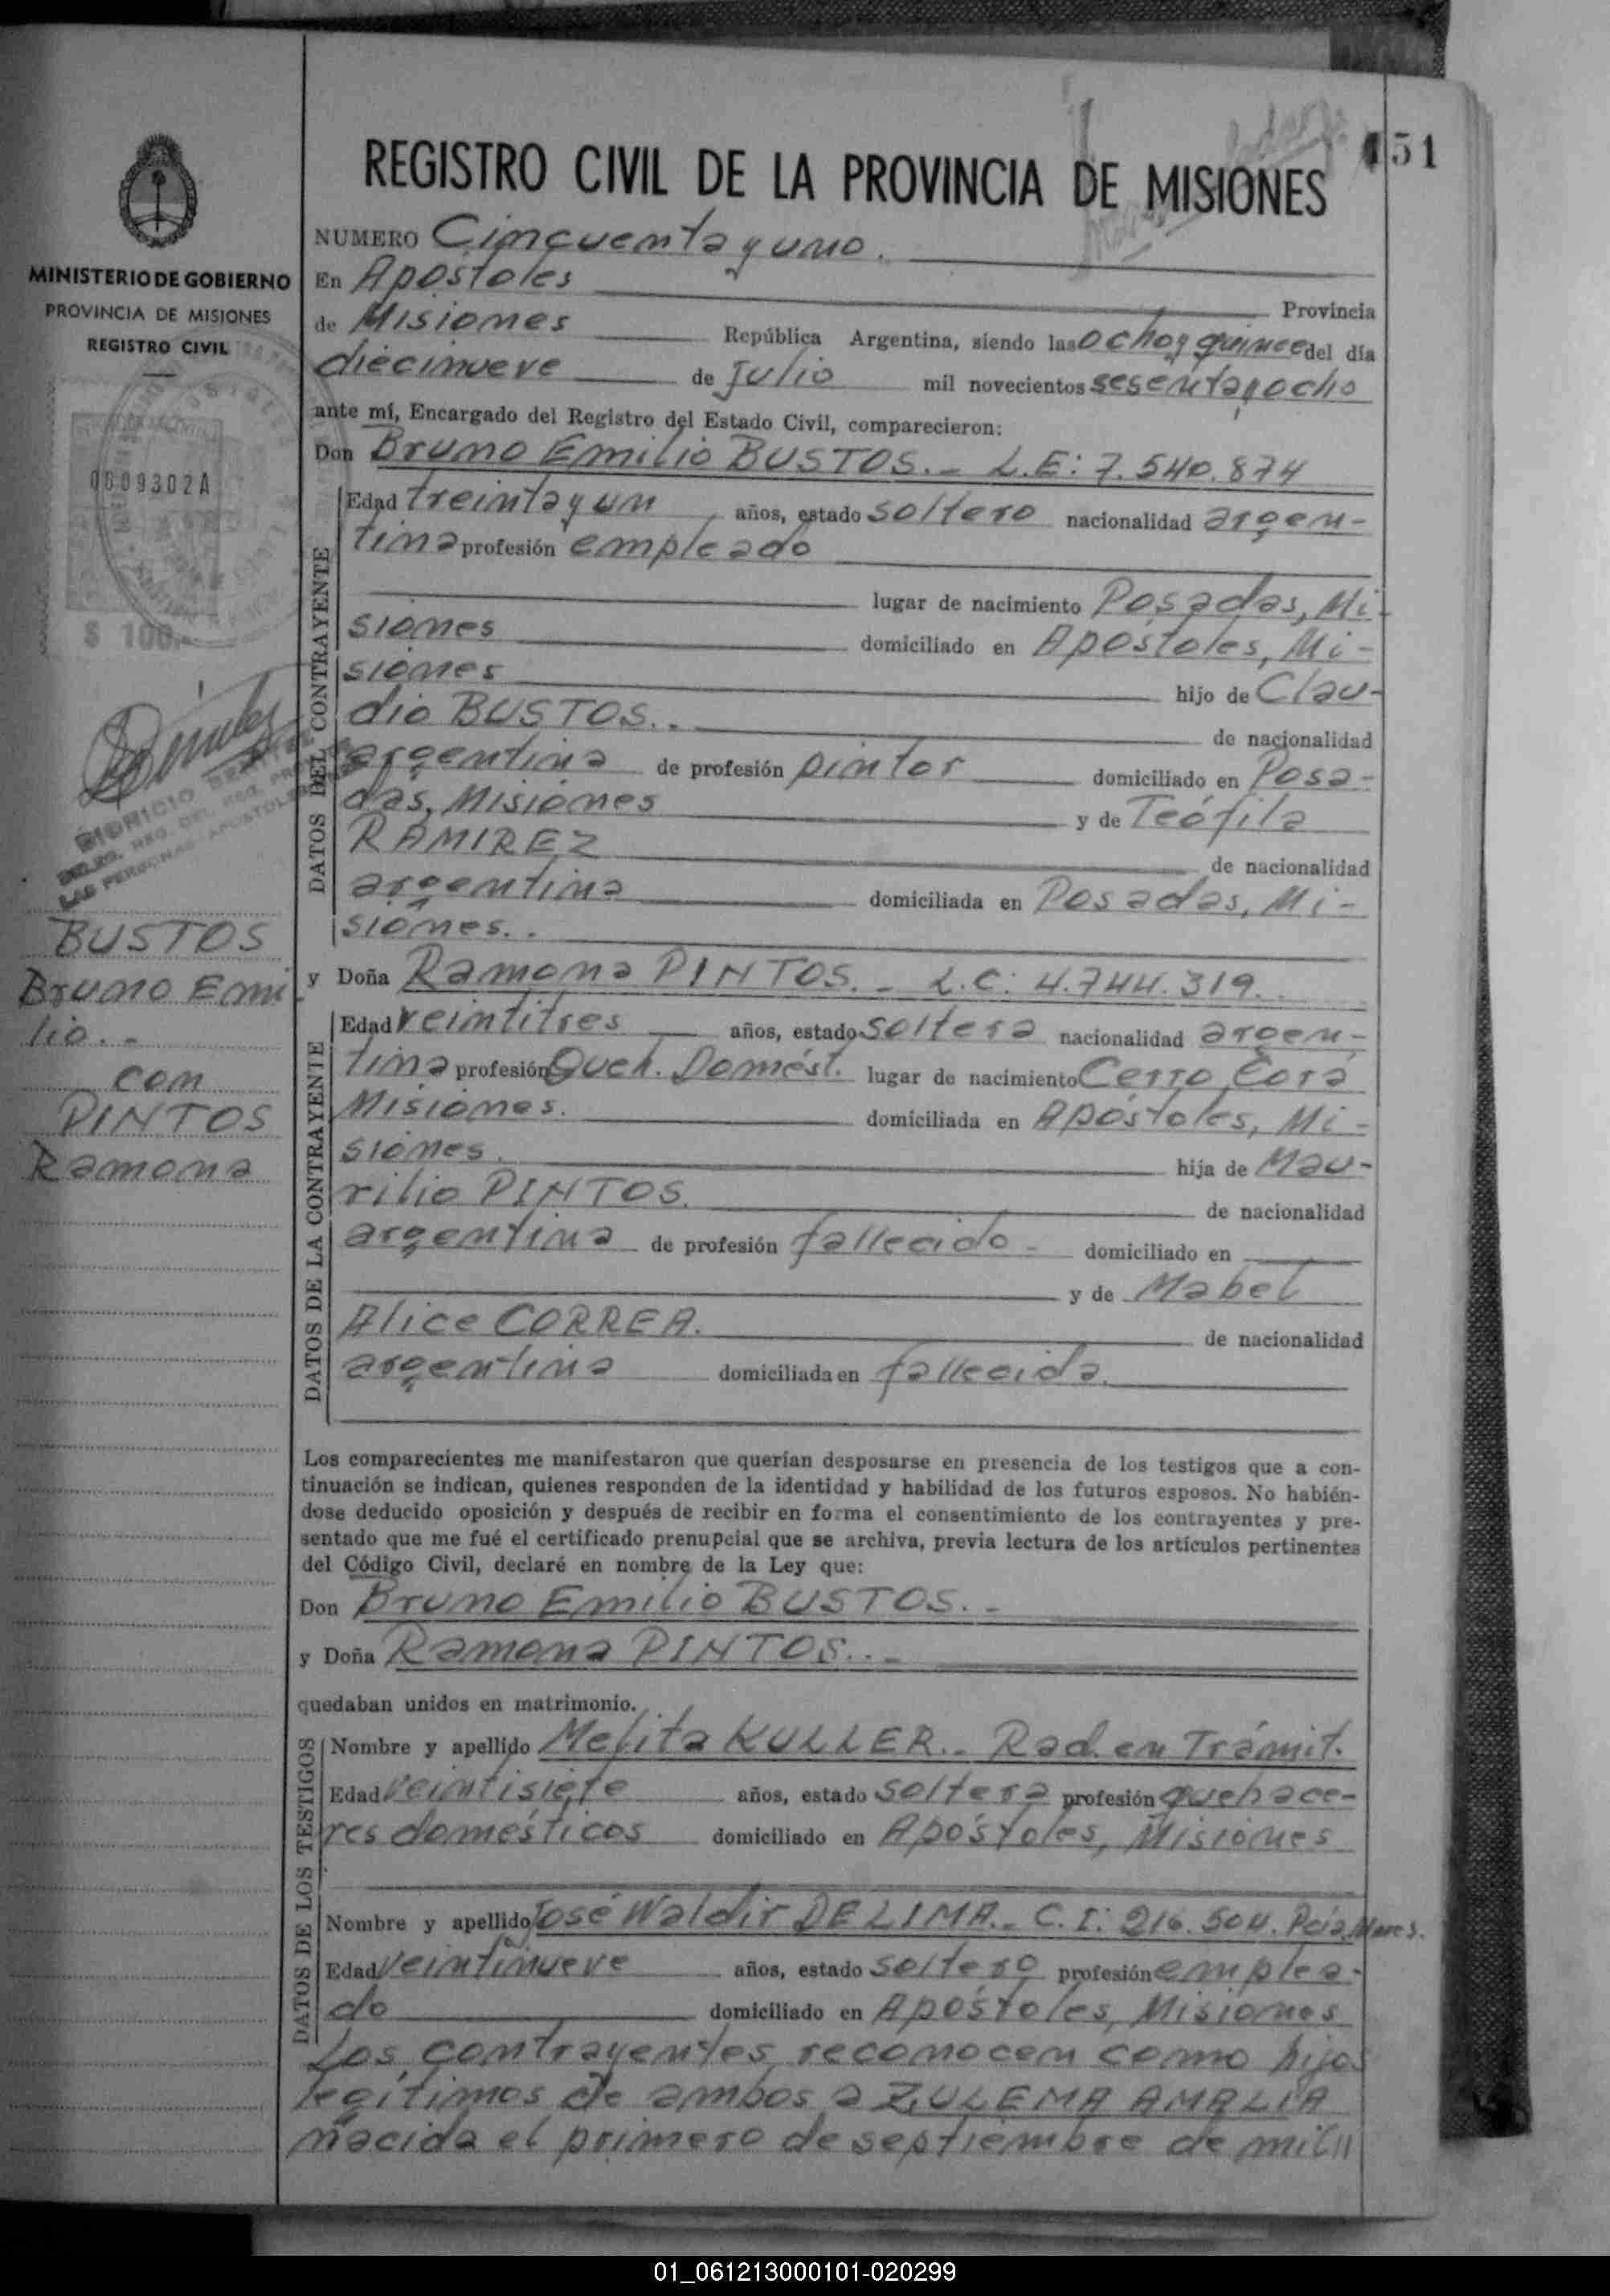 151
REGISTRO CIVIL DE LA PROVINCIA DE MISIONES
MINISTERIO DE GOBIERNO
PROVINCIA DE MISIONES
REGISTRO CIVIL
0609302A
$ 100.-
DIONICIO
BUSTOS
Bruno Emi
lio. -
con
PINTOS
Ramona
NUMERO Cincuenta y uno.
En Apóstoles Provincia
de Misiones República Argentina, siendo las ocho y quince del día
diecinueve de Julio mil novecientos sesenta y ocho
ante mí, Encargado del Registro del Estado Civil, comparecieron:
Don Bruno Emilio BUSTOS. - L.E: 7.540.874
DATOS DEL CONTRAYENTE
Edad treinta y un años, estado soltero nacionalidad argen-
tina profesión empleado
lugar de nacimiento Posadas, Mi-
siones domiciliado en Apóstoles, Mi-
siones hijo de Clau-
dio BUSTOS. - de nacionalidad
argentina de profesión pintor domiciliado en Posa-
das, Misiones y de Teófila
RAMIREZ de nacionalidad
argentina domiciliada en Posadas, Mi-
siones. .
y Doña Ramona PINTOS. - L.C: 4.744.319.
DATOS DE LA CONTRAYENTE
Edad veintitres años, estado soltera nacionalidad argen-
tina profesión Queh. Domést. lugar de nacimiento Cerro Corá
Misiones. domiciliada en Apóstoles, Mi-
siones. hija de Mau-
rilio PINTOS. de nacionalidad
argentina de profesión fallecido - domiciliado en
y de Mabel
Alice CORREA. de nacionalidad
argentina domiciliada en fallecida.
Los comparecientes me manifestaron que querían desposarse en presencia de los testigos que a con-
tinuación se indican, quienes responden de la identidad y habilidad de los futuros esposos. No habién-
dose deducido oposición y después de recibir en forma el consentimiento de los contrayentes y pre-
sentado que me fué el certificado prenupcial que se archiva, previa lectura de los artículos pertinentes
del Código Civil, declaré en nombre de la Ley que:
Don Bruno Emilio BUSTOS. -
y Doña Ramona PINTOS. . -
quedaban unidos en matrimonio.
DATOS DE LOS TESTIGOS
Nombre y apellido Melita KULLER. - Rad. en Trámit.
Edad veintisiete años, estado soltera profesión quehace-
res domésticos domiciliado en Apóstoles, Misiones
Nombre y apellido José Waldir DE LIMA. - C.I: 216.504. Pcia. Mnes.
Edad veintinueve años, estado soltero profesión emplea-
do domiciliado en Apóstoles, Misiones
Los contrayentes reconocen como hijos
legítimos de ambos a ZULEMA AMALIA
nacida el primero de septiembre de mil//
01_061213000101-020299